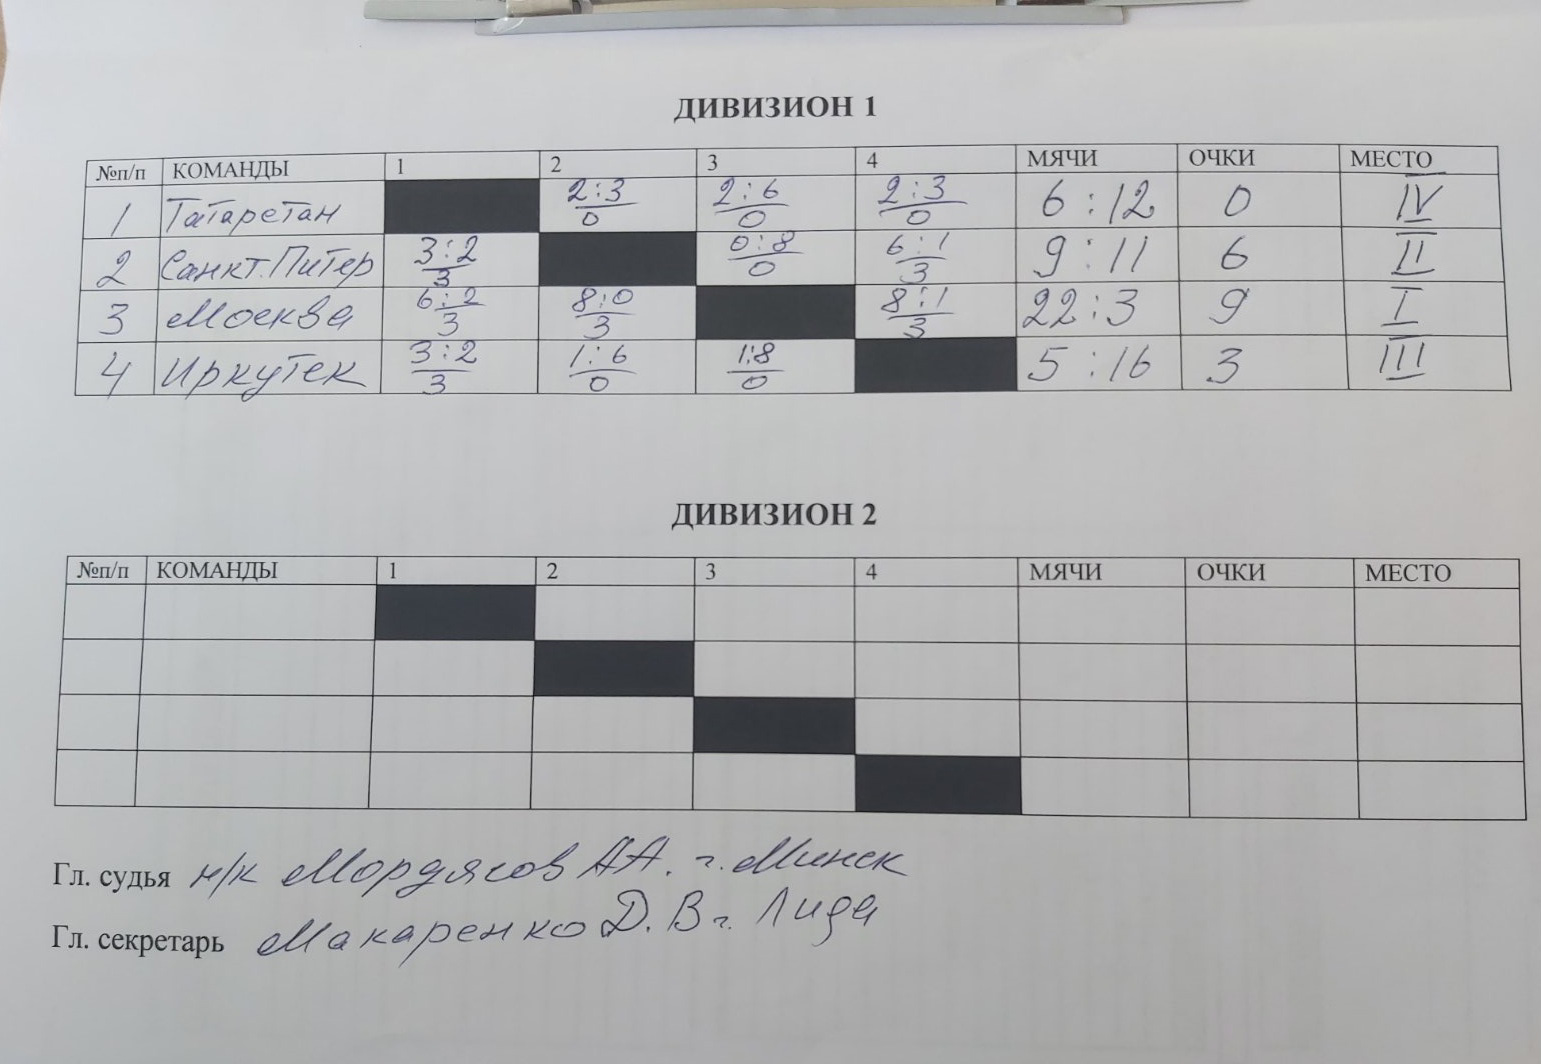 ДИВИЗИОН 1
№п/п КОМАНДЫ 1 2 3 4 МЯЧИ ОЧКИ МЕСТО
1 Татарстан 2:3 2:6 2:3 6:12 0 IV
0 0 0
2 Санкт.Питер 3:2 0:8 6:1 9:11 6 II
3 0 3
3 Москва 6:2 8:0 8:1 22:3 9 I
3 3 3
4 Иркутск 3:2 1:6 1:8 5:16 3 III
3 0 0
ДИВИЗИОН 2
№п/п КОМАНДЫ 1 2 3 4 МЯЧИ ОЧКИ МЕСТО
Гл. судья н/к Мордясов А.А. г. Минск
Гл. секретарь Макаренко Д.В г. Лида